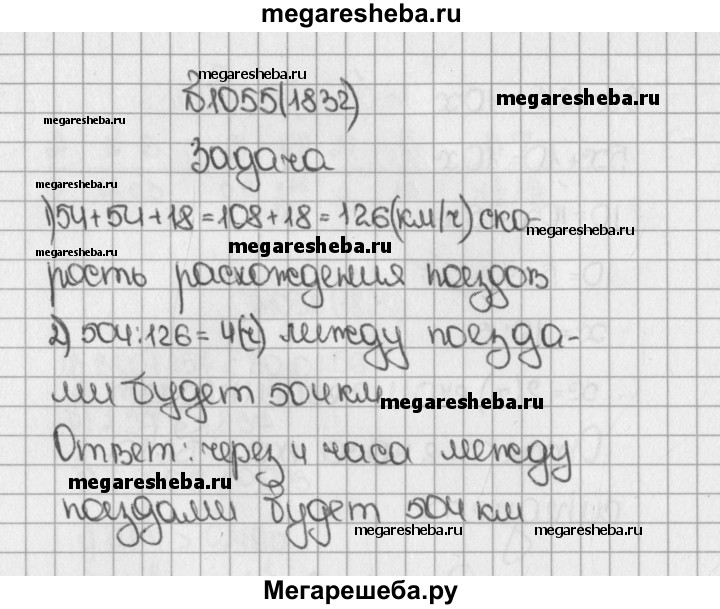 megaresheba.ru
megaresheba.ru
№1055(1832)
megaresheba.ru
megaresheba.ru
Задача
megaresheba.ru
1) 54+54+18=108+18=126(км/ч) ско-
megaresheba.ru
megaresheba.ru
рость расхождения поездов
2) 504:126=4(ч) между поезда-
ми будет 504 км
megaresheba.ru
Ответ: через 4 часа между
megaresheba.ru
поездами будет 504 км
megaresheba.ru
megaresheba.ru
Мегарешеба.ру